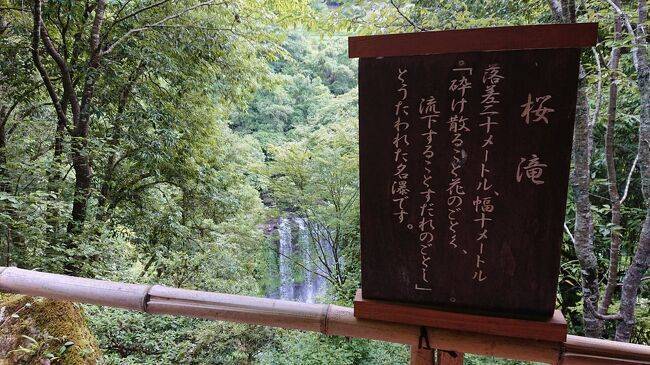 桜滝
落差二十メートル、幅十メートル。
「砕け散ること花のごとく、
流下することすだれのごとし」
とうたわれた名瀑です。